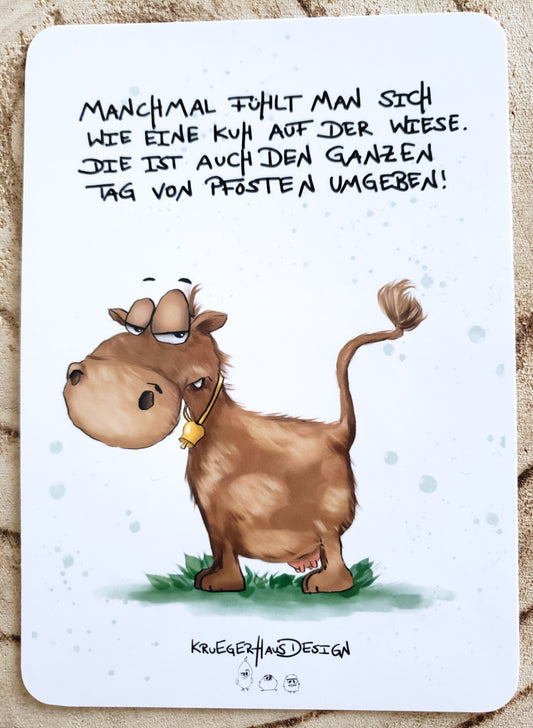 MANCHMAL FÜHLT MAN SICH
WIE EINE KUH AUF DER WIESE.
DIE IST AUCH DEN GANZEN
TAG VON PFOSTEN UMGEBEN!
KRUEGERHAUSDESIGN